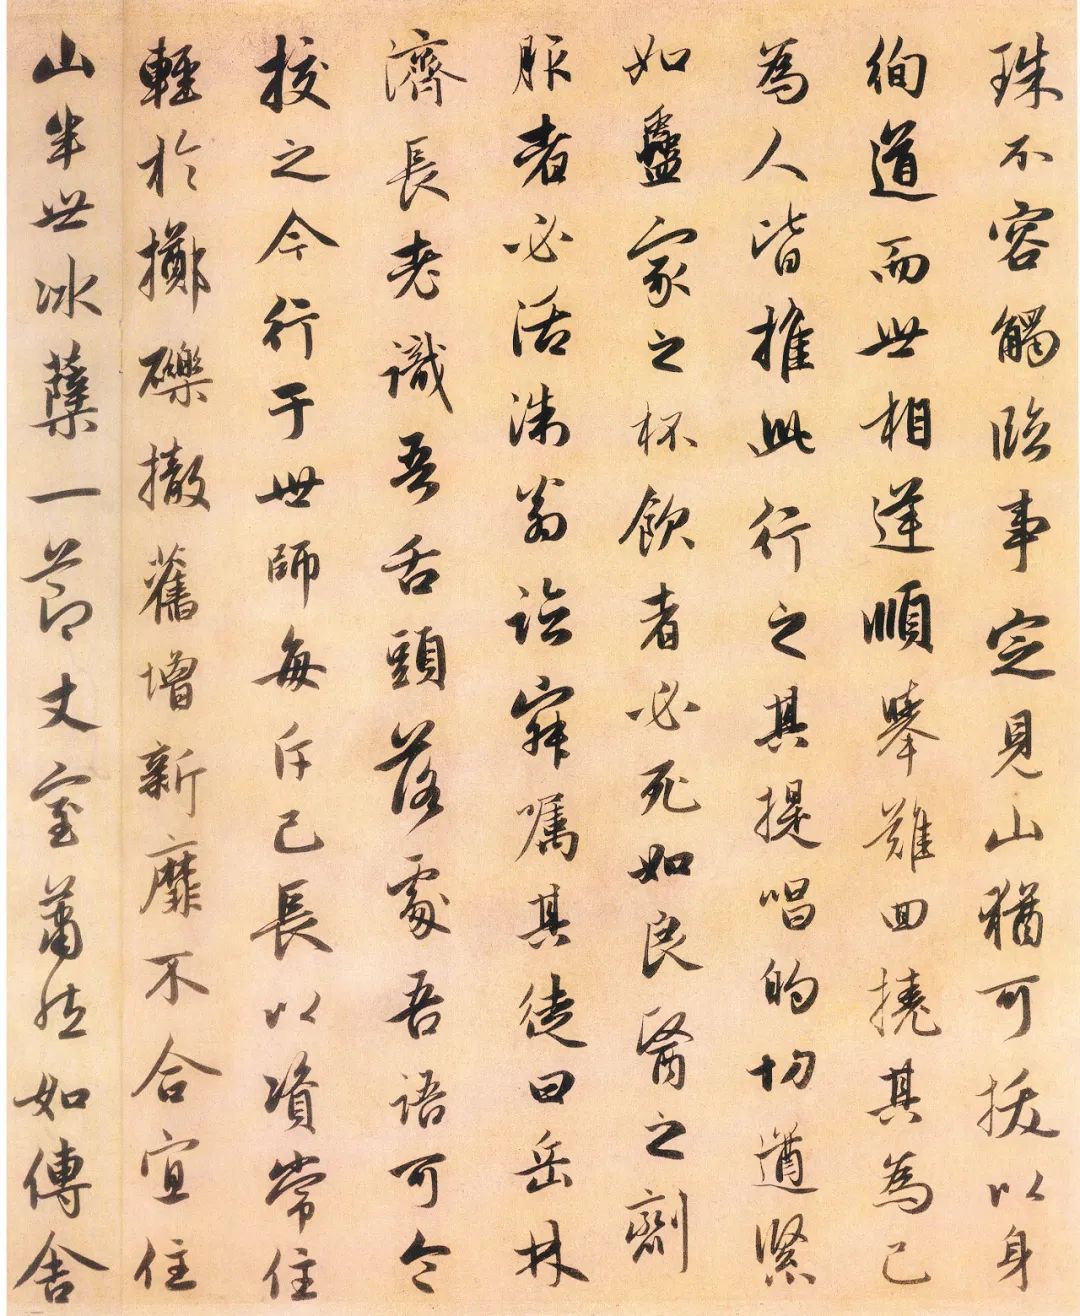 珠不容觸臨事定見山猶可拔以身
徇道而世相逆順舉難回撓其為己
為人皆推此行之其提唱的切遒緊
如蠱家之杯飲者必死如良醫之劑
服者必活洙翁寐囑其徒曰岳林
濟長老識吾舌頭落處吾語可令
校之今行于世師每斥己長以資常住
輕於擲礫撤舊增新靡不合宜住
山半世冰蘗一節丈室蕭然如傳舍